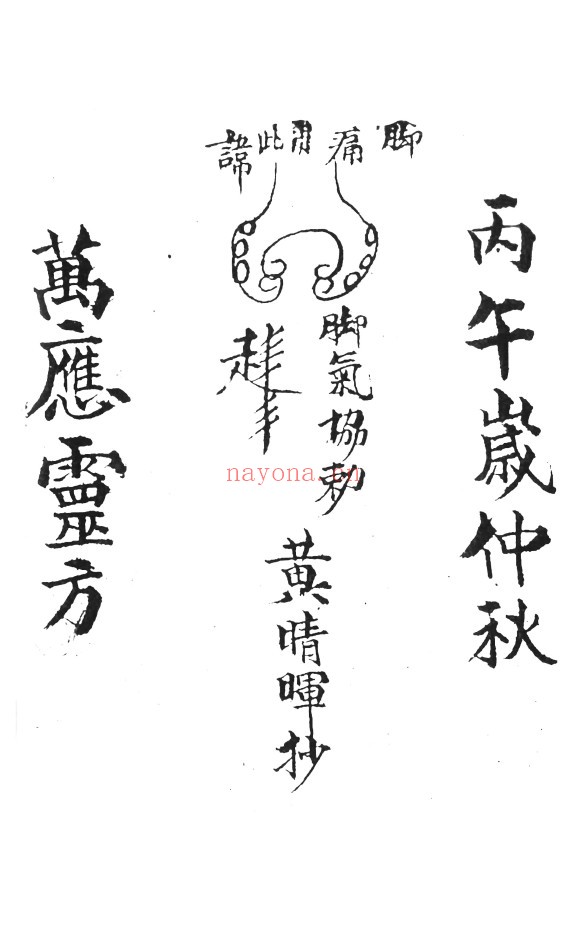 丙午歲仲秋
脚痛用此諱
脚氣協勑
黃晴暉抄
萬應靈方
nayona.cn